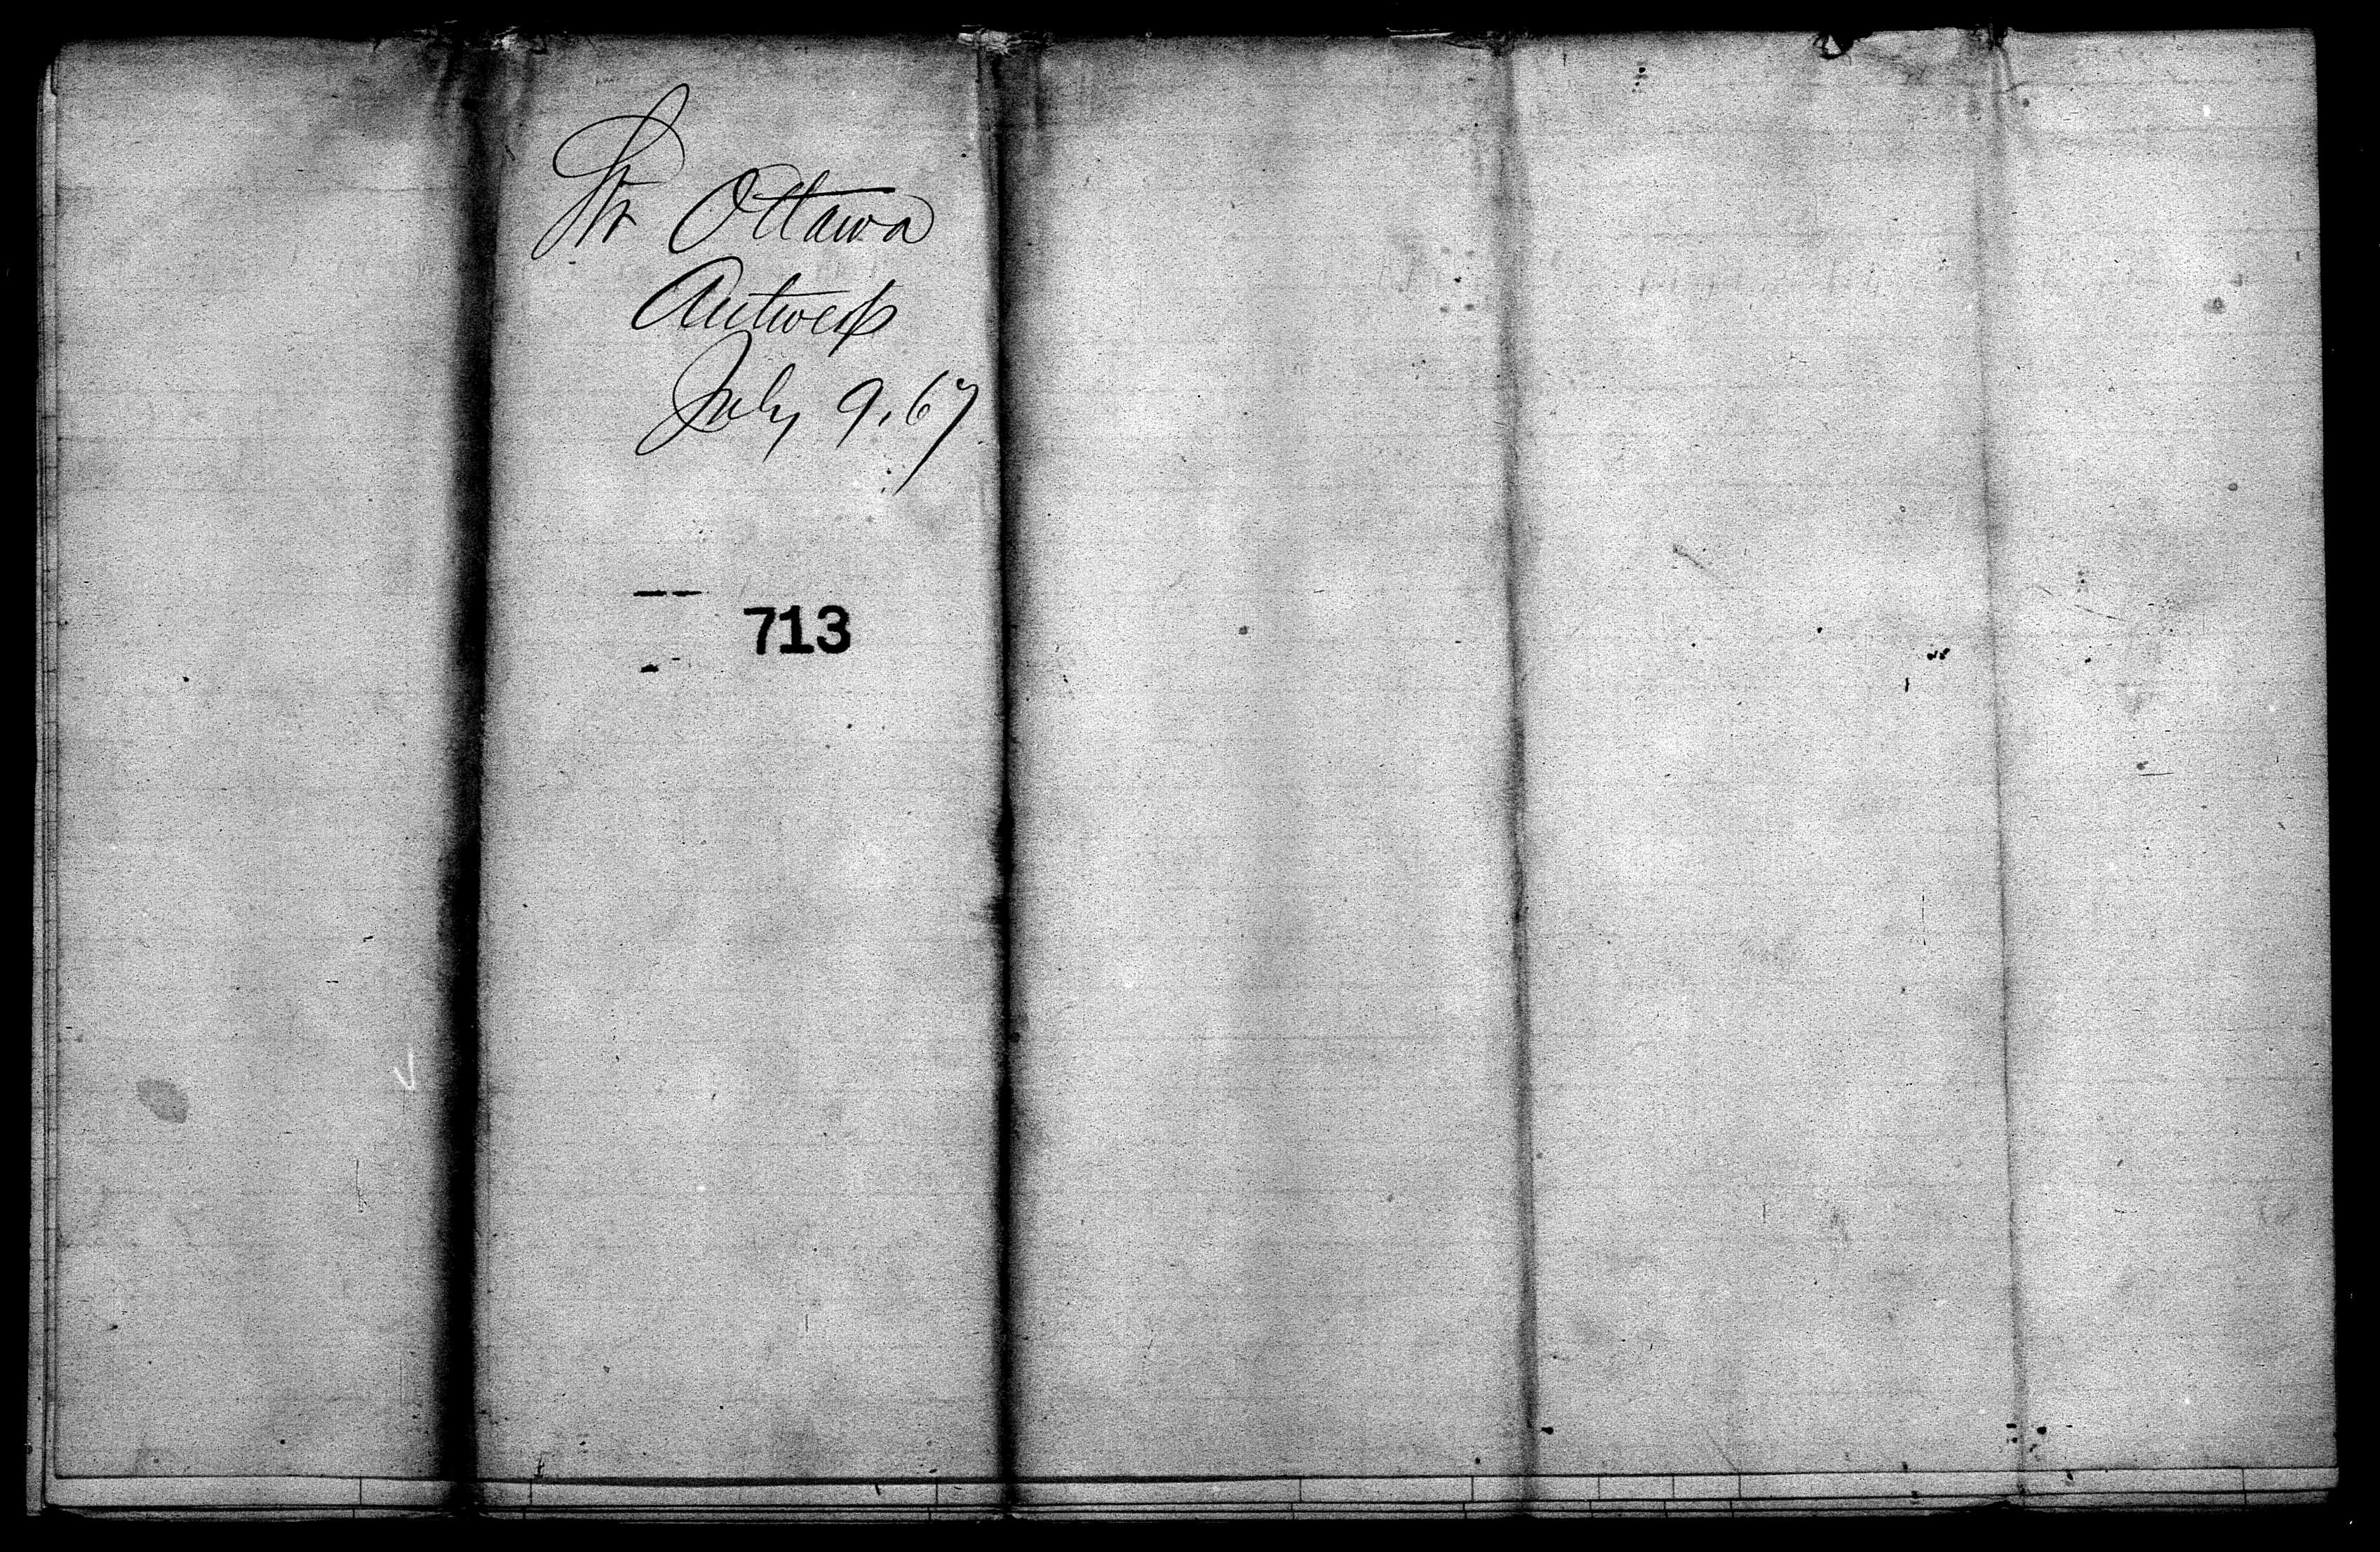 Str Ottawa
Antwerp
July 9, 67
713